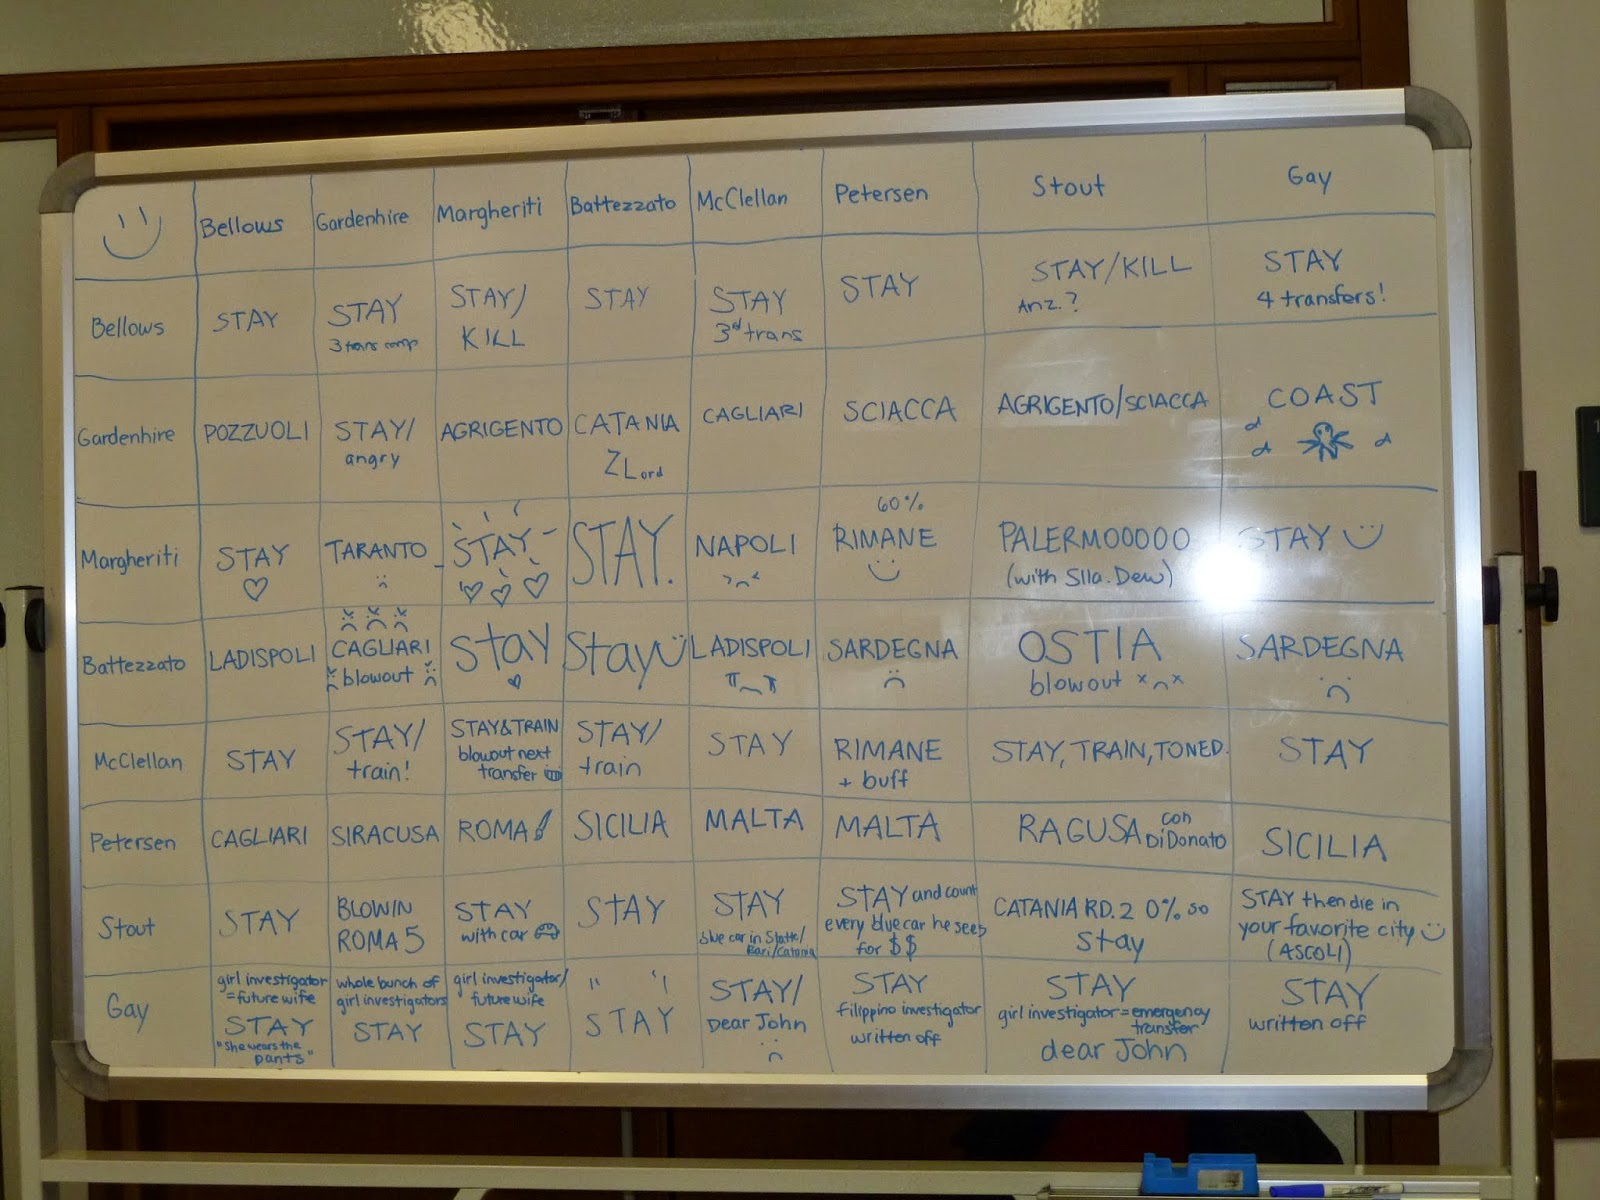 Bellows Gardenhire Margheriti Battezzato McClellan Petersen Stout Gay
Bellows
STAY
STAY
3 trans comp
STAY/
KILL
STAY
STAY
3rd trans
STAY
STAY/KILL
Anz.?
STAY
4 transfers!
Gardenhire
POZZUOLI
STAY/
angry
AGRIGENTO
CATANIA
Z Lord
CAGLIARI
SCIACCA
AGRIGENTO/SCIACCA
COAST
Margheriti
STAY
TARANTO
STAY
STAY.
NAPOLI
60%
RIMANE
PALERMOOOOO
(with Slla. Dew)
STAY
Battezzato
LADISPOLI
CAGLIARI
blowout
stay
Stay
LADISPOLI
SARDEGNA
OSTIA
blowout
SARDEGNA
McClellan
STAY
STAY/
train!
STAY&TRAIN
blowout next
transfer
STAY/
train
STAY
RIMANE
+ buff
STAY, TRAIN, TONED.
STAY
Petersen
CAGLIARI
SIRACUSA
ROMA
SICILIA
MALTA
MALTA
RAGUSA con
DiDonato
SICILIA
Stout
STAY
BLOWIN
ROMA 5
STAY
with car
STAY
STAY
blue car in Statte/
Bari/Catania
STAY and count
every blue car he sees
for $$
CATANIA RD. 2 0% so
stay
STAY then die in
your favorite city
(ASCOLI)
Gay
girl investigator
=future wife
STAY
"She wears the
pants"
whole bunch of
girl investigators
STAY
girl investigator/
future wife
STAY
" "
STAY
STAY/
Dear John
STAY
filippino investigator
written off
STAY
girl investigator = emergency
transfer
dear John
STAY
written off